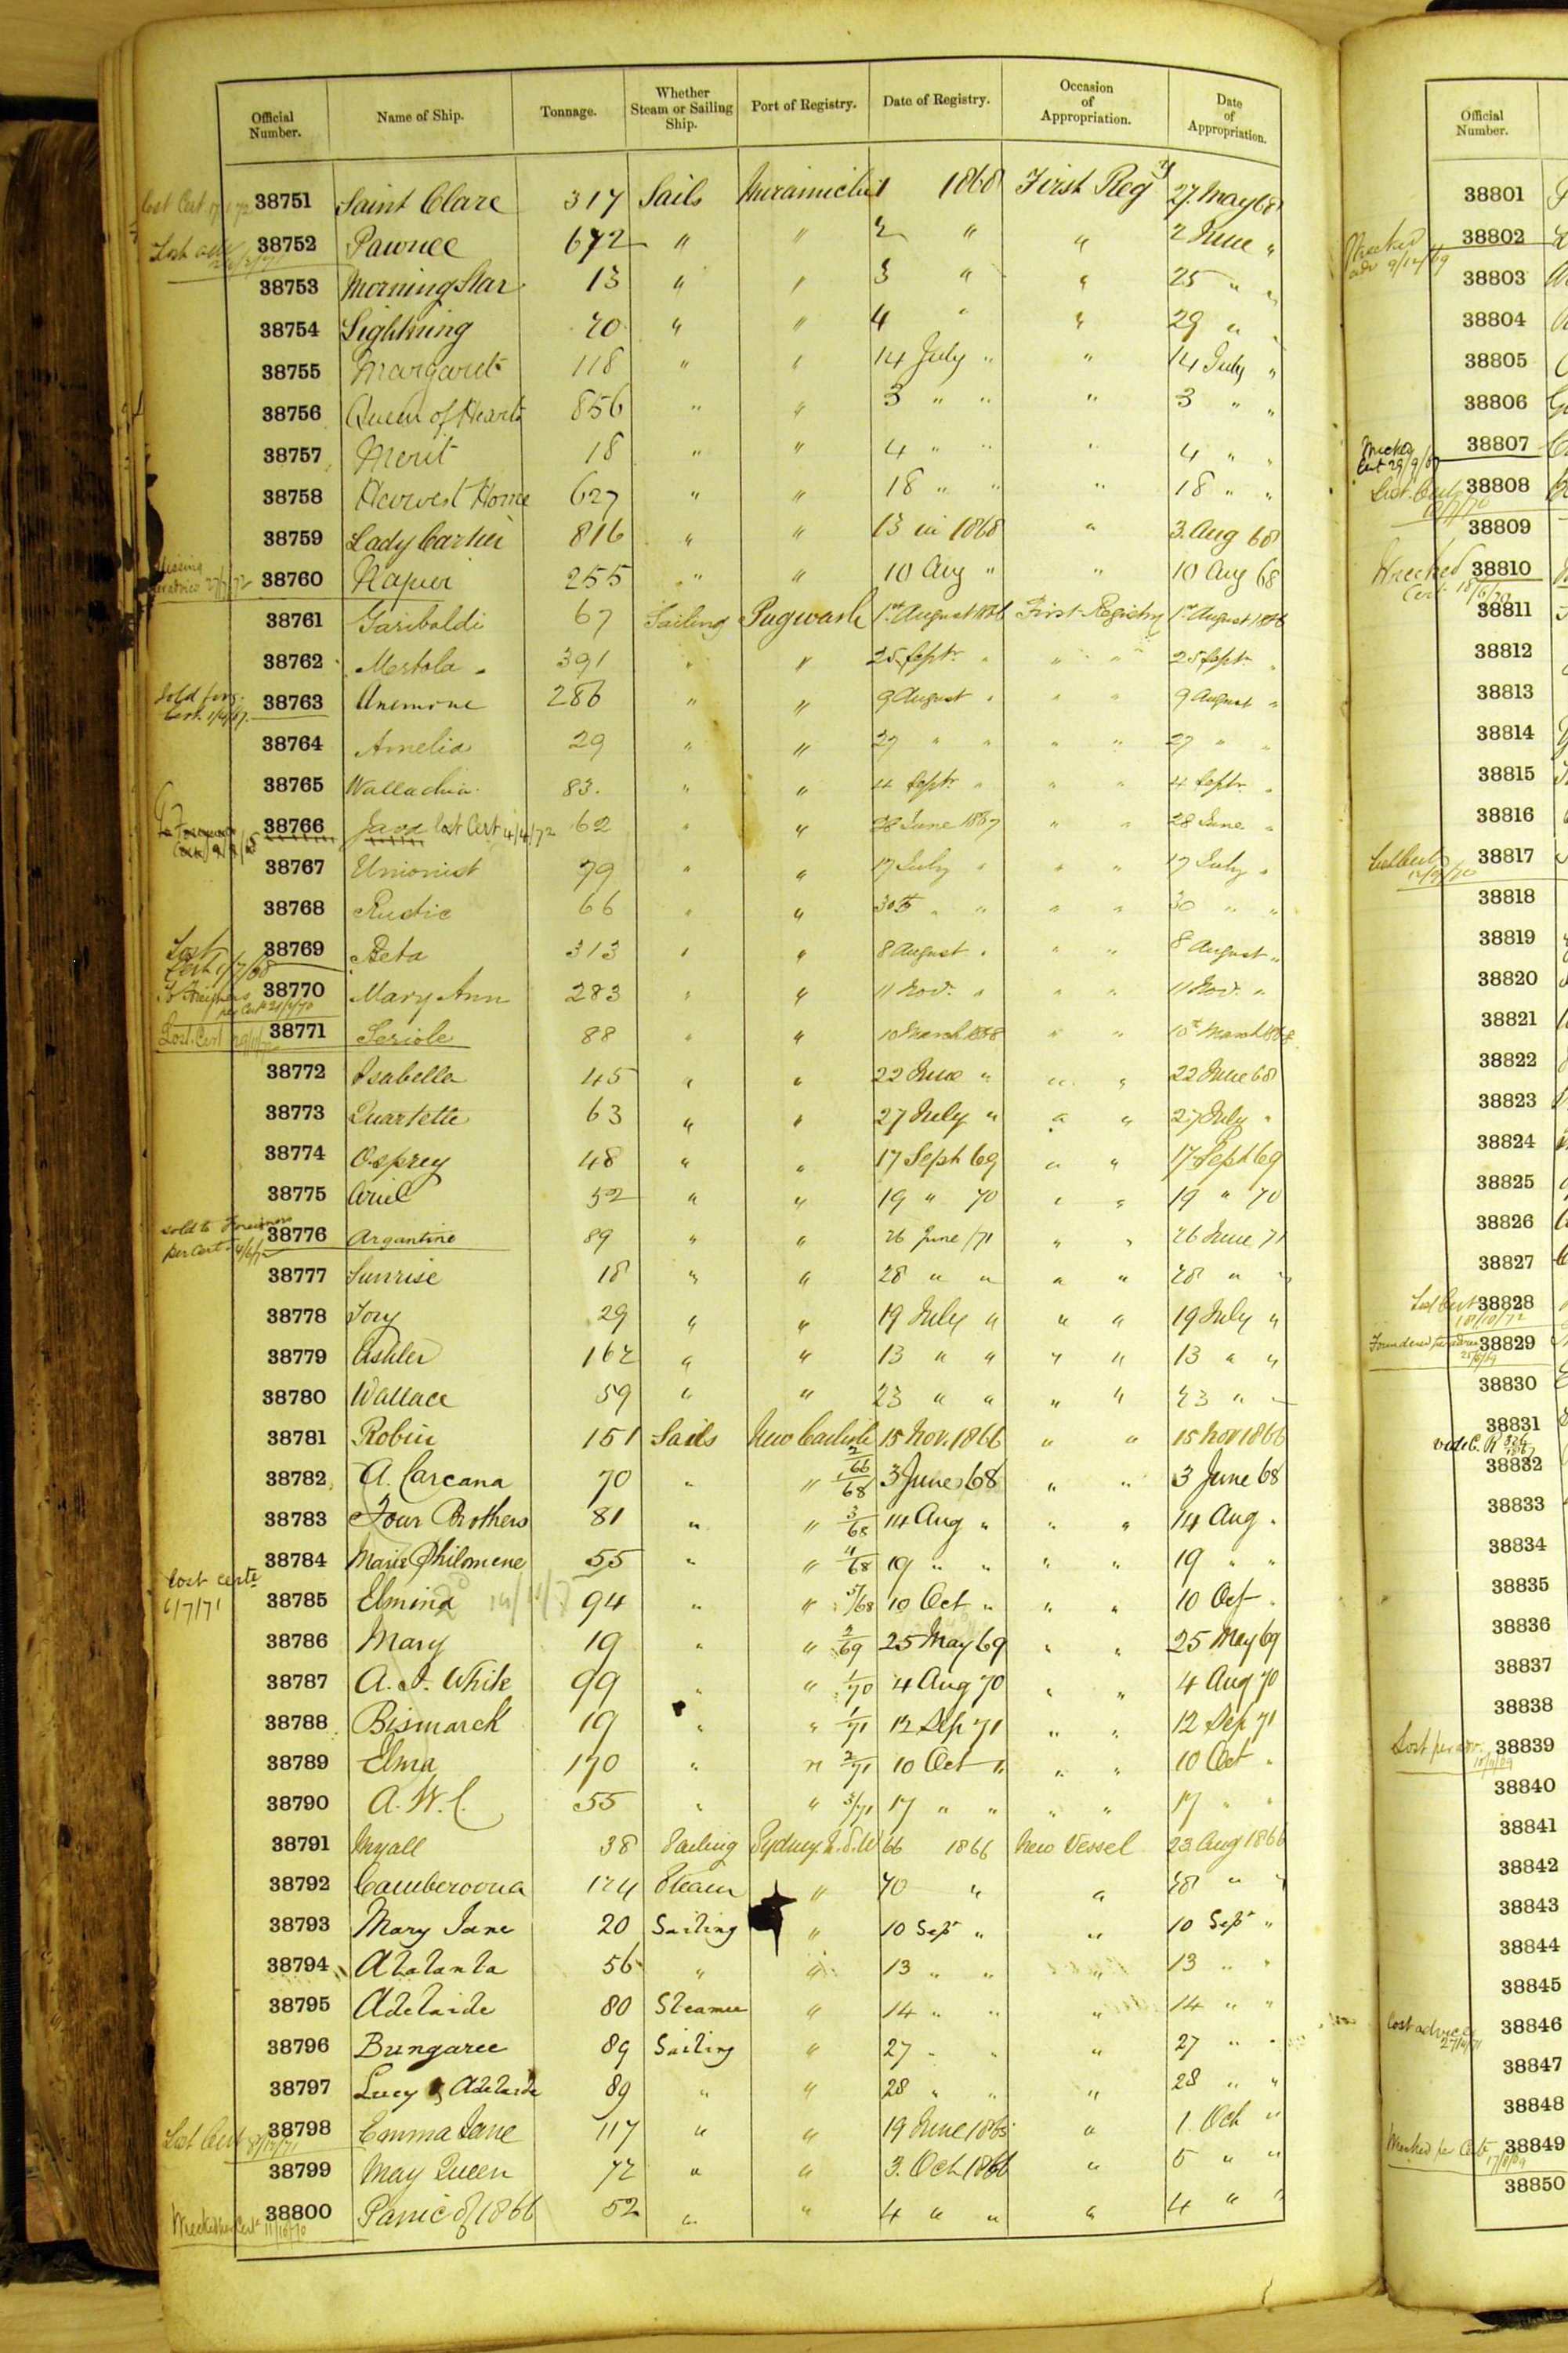 Official Number. Name of Ship. Tonnage. Whether Steam or Sailing Ship. Port of Registry. Date of Registry. Occasion of Appropriation. Date of Appropriation.
38751 Saint Clare 317 Sails Miramichi 1 1868 First Regy 27 May 68
38752 Pawnee 672 " " 2 " " 2 June "
38753 Morning Star 13 " " 3 " " 25 " "
38754 Lightning 20 " " 4 " " 29 " "
38755 Margaret 118 " " 14 July " " 14 July "
38756 Queen of Hearts 856 " " 3 " " " 3 " "
38757 Merit 18 " " 4 " " " 4 " "
38758 Harvest Home 627 " " 18 " " " 18 " "
38759 Lady Cartier 816 " " 13 in 1868 " 3. Aug 68
38760 Napier 255 " " 10 Aug " " 10 Aug 68
38761 Garibaldi 67 Sailing Pugwash 1st August 1866 First Registry 1st August 1866
38762 Mertola 391 " " 25 Septr. " " " 25 Septr "
Sold forg. Cert. 38763 Anemone 286 " " 9 August " " " 9 August "
38764 Amelia 29 " " 27 " " " " 27 " "
38765 Wallachia 83. " " 4 Septr. " " " 4 Septr. "
38766 Java lost Cert 4/4/72 62 " " 28 June 1867 " " 28 June "
38767 Unionist 79 " " 17 July " " " 17 July "
38768 Rustic 66 " " 30th " " " " 30 " "
Lost Cert 1/7/68 38769 Beta 313 " " 8 August " " " 8 August "
To Foreigners per Cert 38770 Mary Ann 283 " " 11 Nov. " " " 11 Nov. "
Lost. Cert 38771 Seriole 88 " " 10 March 1868 " " 10th March 1868
38772 Isabella 45 " " 22 June " " " 22 June 68
38773 Quartette 63 " " 27 July " " " 27 July "
38774 Osprey 48 " " 17 Sept 69 " " 17 Sept 69
38775 Ariel 52 " " 19 " 70 " " 19 " 70
sold to Foreigners per Cert. 38776 Argantine 89 " " 26 June /71 " " 26 June 71
38777 Sunrise 18 " " 28 " " " " 28 " "
38778 Tory 29 " " 19 July " " " 19 July "
38779 Ashler 162 " " 13 " " " " 13 " "
38780 Wallace 59 " " 23 " " " " 23 " "
38781 Robin 151 Sails New Carlisle 2/66 15 Nov. 1866 " " 15 Nov 1866
38782 A. Carcana 70 " " 1/68 3 June 68 " " 3 June 68
38783 Four Brothers 81 " " 3/68 14 Aug " " " 14 Aug "
38784 Marie Philomene 55 " " 4/68 19 " " " " 19 " "
Lost certe 6/7/71 38785 Elmina 94 " " 5/68 10 Oct " " " 10 Oct "
38786 Mary 19 " " 2/69 25 May 69 " " 25 May 69
38787 A. J. White 99 " " 1/70 4 Aug 70 " " 4 Aug 70
38788 Bismarck 19 " " 1/71 12 Sep 71 " " 12 Sep 71
38789 Elma 170 " " 2/71 10 Oct " " " 10 Oct "
38790 A. W. C. 55 " " 3/71 17 " " " " 17 " "
38791 Myall 38 Sailing Sydney N.S.W 66 1866 New Vessel 23 Aug 1866
38792 Camberoona 124 Steam " 70 " " 28 " "
38793 Mary Jane 20 Sailing " 10 Sept " " 10 Sept "
38794 Atalanta 56 " " 13 " " " 13 " "
38795 Adelaide 80 Steamer " 14 " " " 14 " "
38796 Bungaree 89 Sailing " 27 " " " 27 " "
38797 Lucy & Adelaide 89 " " 28 " " " 28 " "
Lost Cert 38798 Emma Jane 117 " " 19 June 1865 " 1. Oct "
38799 May Queen 72 " " 3. Oct 1866 " 5 " "
Wrecked per Cert 11/10/70 38800 Panic of 1866 52 " " 4 " " " 4 " "
Official Number.
38801
Wrecked adv 9/12/69 38802
38803
38804
38805
38806
Cert 29/9/69 38807
Lost. Cert 38808
38809
Wrecked Cert. 18/6/70 38810
38811
38812
38813
38814
38815
38816
38817
38818
38819
38820
38821
38822
38823
38824
38825
38826
38827
38828
Foundered 38829
38830
38831
38832
38833
38834
38835
38836
38837
38838
Lost per adv. 38839
38840
38841
38842
38843
38844
38845
Lost advice 38846
38847
38848
Wrecked per Certe 38849
38850